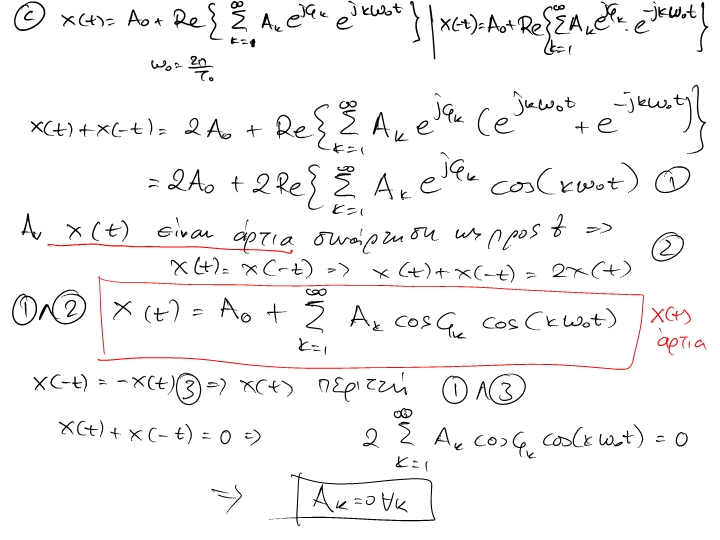 ⓒ x(t) = A₀ + Re{ ∑_{k=1}^{∞} A_k e^{jφ_k} e^{jkω₀t} } | x(-t) = A₀ + Re{ ∑_{k=1}^{∞} A_k e^{jφ_k} · e^{-jkω₀t} }
ω₀ = 2π/T₀
x(t) + x(-t) = 2A₀ + Re{ ∑_{k=1}^{∞} A_k e^{jφ_k} (e^{jkω₀t} + e^{-jkω₀t}) }
= 2A₀ + 2Re{ ∑_{k=1}^{∞} A_k e^{jφ_k} cos(kω₀t) ①
Αν x(t) είναι άρτια συνάρτηση ως προς t =>
x(t) = x(-t) => x(t) + x(-t) = 2x(t) ②
①∧② x(t) = A₀ + ∑_{k=1}^{∞} A_k cosφ_k cos(kω₀t) x(t) άρτια
x(-t) = -x(t) ③ => x(t) περιττή ①∧③
x(t) + x(-t) = 0 => 2 ∑_{k=1}^{∞} A_k cosφ_k cos(kω₀t) = 0
=> A_k = 0 ∀k